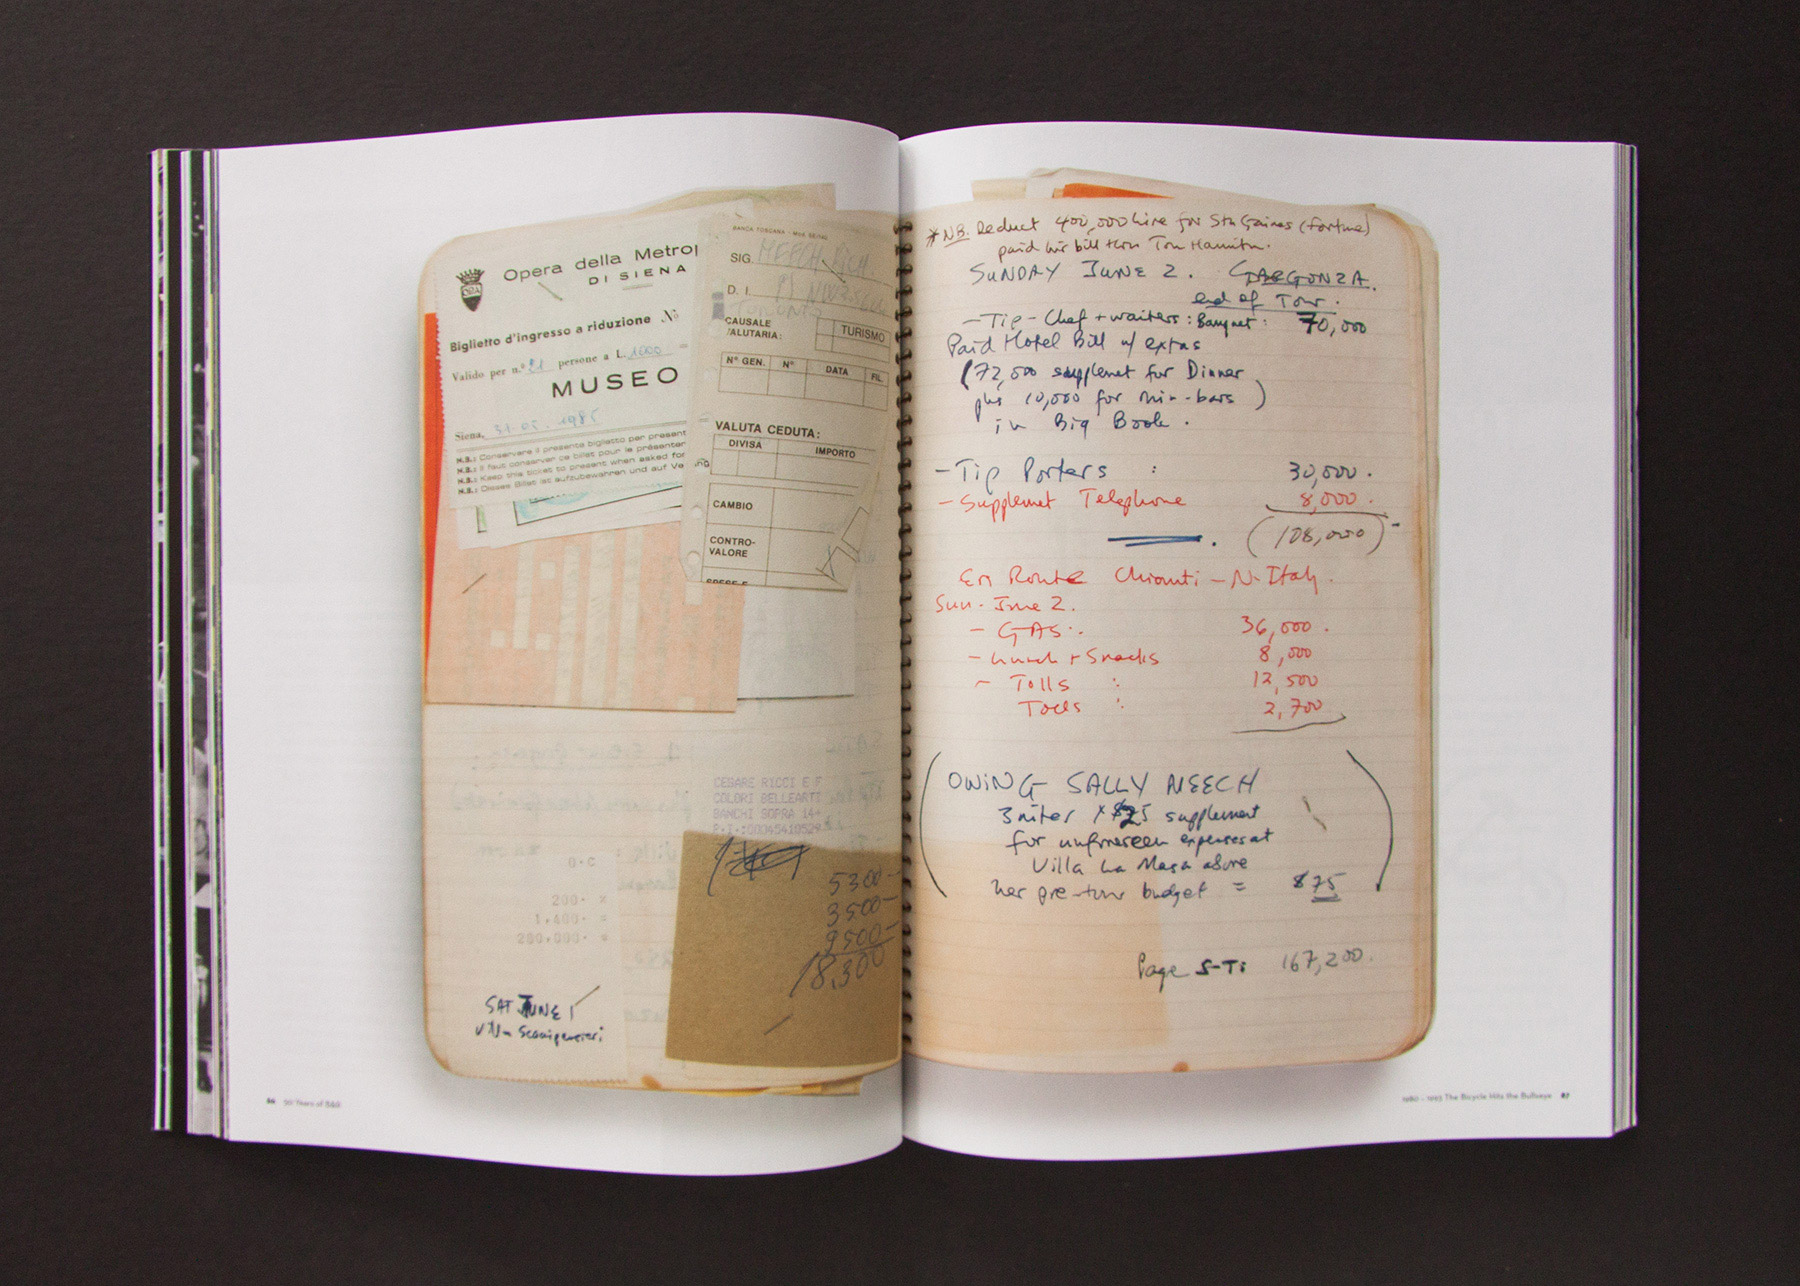 Opera della Metrop
DI SIENA
Biglietto d'ingresso a riduzione Nº
Valido per n.º 21 persone a L. 1000
MUSEO
Siena,
N.B.: Conservare il presente biglietto per present
N.B.: Il faut conserver ce billet pour le présenter
N.B.: Keep this ticket to present when asked for
N.B.: Dieses Billet ist aufzubewahren und auf Ve
BANCA TOSCANA - Mod.
SIG. MEECH RICH.
D. I.
TORONTO
CAUSALE
VALUTARIA:
TURISMO
Nº GEN. Nº DATA FIL.
VALUTA CEDUTA:
DIVISA IMPORTO
CAMBIO
CONTRO-
VALORE
SPESE E
CESARE RICCI E F
COLORI BELLEARTI
BANCHI SOPRA 14
P.I.:00045410529
5300-
3500-
9500-
18,300
0.C
200. x
1.400. =
280.000. =
SAT JUNE 1
Villa
86 50 Years of B&R
* NB. Deduct 400,000 lire for Stn Gaines (fortune)
paid his bill thru Tom Hamilton.
SUNDAY JUNE 2. GARGONZA.
end of Tour.
- Tip - Chef + waiters : Banquet : 70,000
Paid Hotel Bill w/ extras
(72,000 supplemet for Dinner
plus 10,000 for mini-bars )
in Big Book.
- Tip Porters : 30,000.
- Supplemet Telephone 8,000.
(108,000)-
En Route Chianti - N. Italy.
Sun. June 2.
- GAS : 36,000.
- Lunch + Snacks 8,000
- Tolls : 12,500
Tolls : 2,700
(OWING SALLY MEECH
3 niter x $25 supplement
for unforeseen expenses at
Villa La Massa above
her pre-tour budget = $75)
Page S-T: 167,200.
1980 – 1993 The Bicycle Hits the Bullseye 87